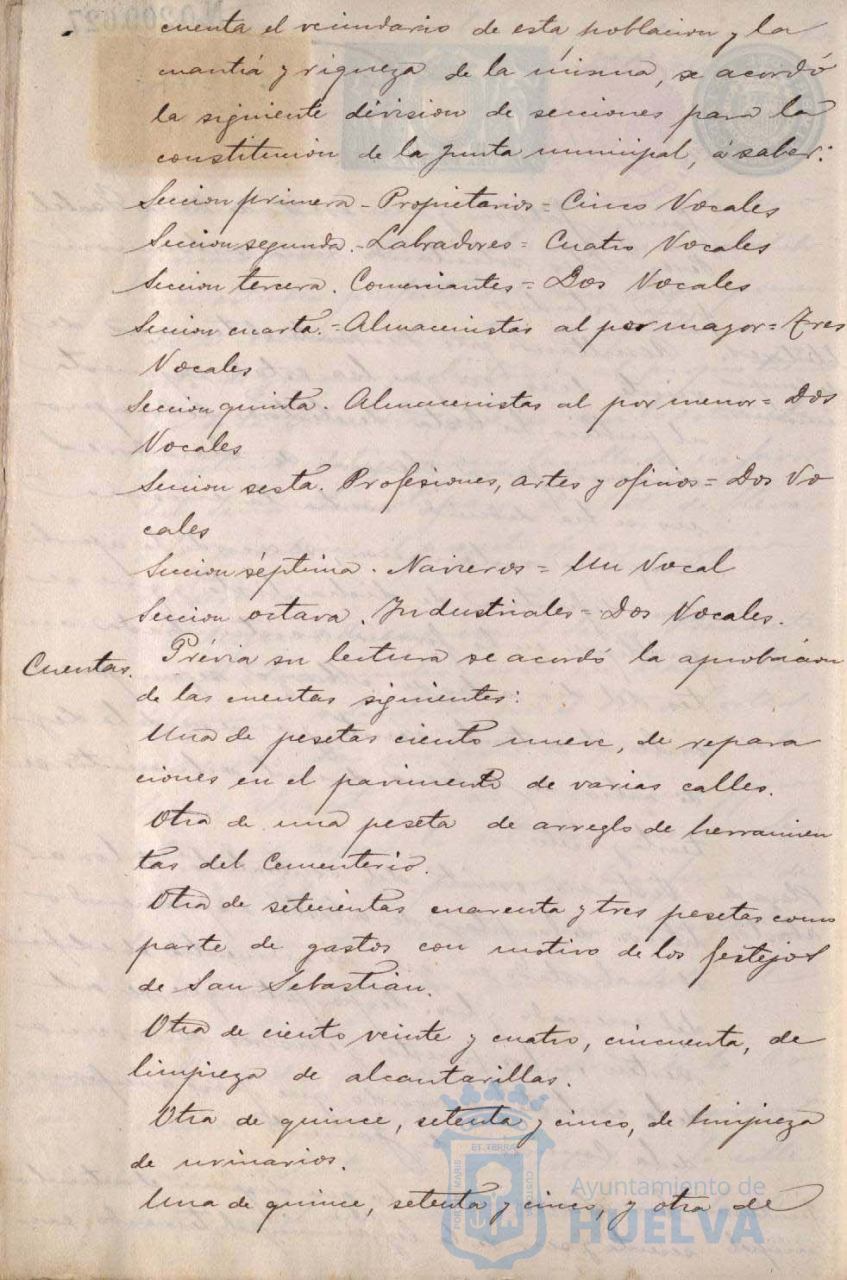 cuenta el vecindario de esta poblacion y la
cuantía y riqueza de la misma, se acordó
la siguiente division de secciones para la
constitucion de la Junta municipal, á saber:
Seccion primera - Propietarios = Cinco Vocales
Seccion segunda. - Labradores = Cuatro Vocales
Seccion tercera. Comerciantes = Dos Vocales
Seccion cuarta. = Almacenistas al por mayor = Tres
Vocales
Seccion quinta. Almacenistas al por menor = Dos
Vocales
Seccion sesta. Profesiones, artes y oficios = Dos Vo
cales
Seccion séptima. Navieros = Un Vocal
Seccion octava. Industriales = Dos Vocales.
Cuentas. Prévia su lectura se acordó la aprobacion
de las cuentas siguientes:
Una de pesetas ciento nueve, de repara
ciones en el pavimento de varias calles.
Otra de una peseta de arreglo de herramien
tas del Cementerio.
Otra de setecientas cuarenta y tres pesetas como
parte de gastos con motivo de los festejos
de San Sebastián.
Otra de ciento veinte y cuatro, cincuenta, de
limpieza de alcantarillas.
Otra de quince, setenta y cinco, de limpieza
de urinarios.
Una de quince, setenta y cinco, y otra de
Ayuntamiento de
HUELVA